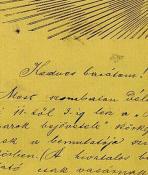 Kedves barátom!
Most szombaton Dél
11-től 3-ig lesz a
bejövetele" körké
a bemutatója
(A hivatalos
csak vasárnap